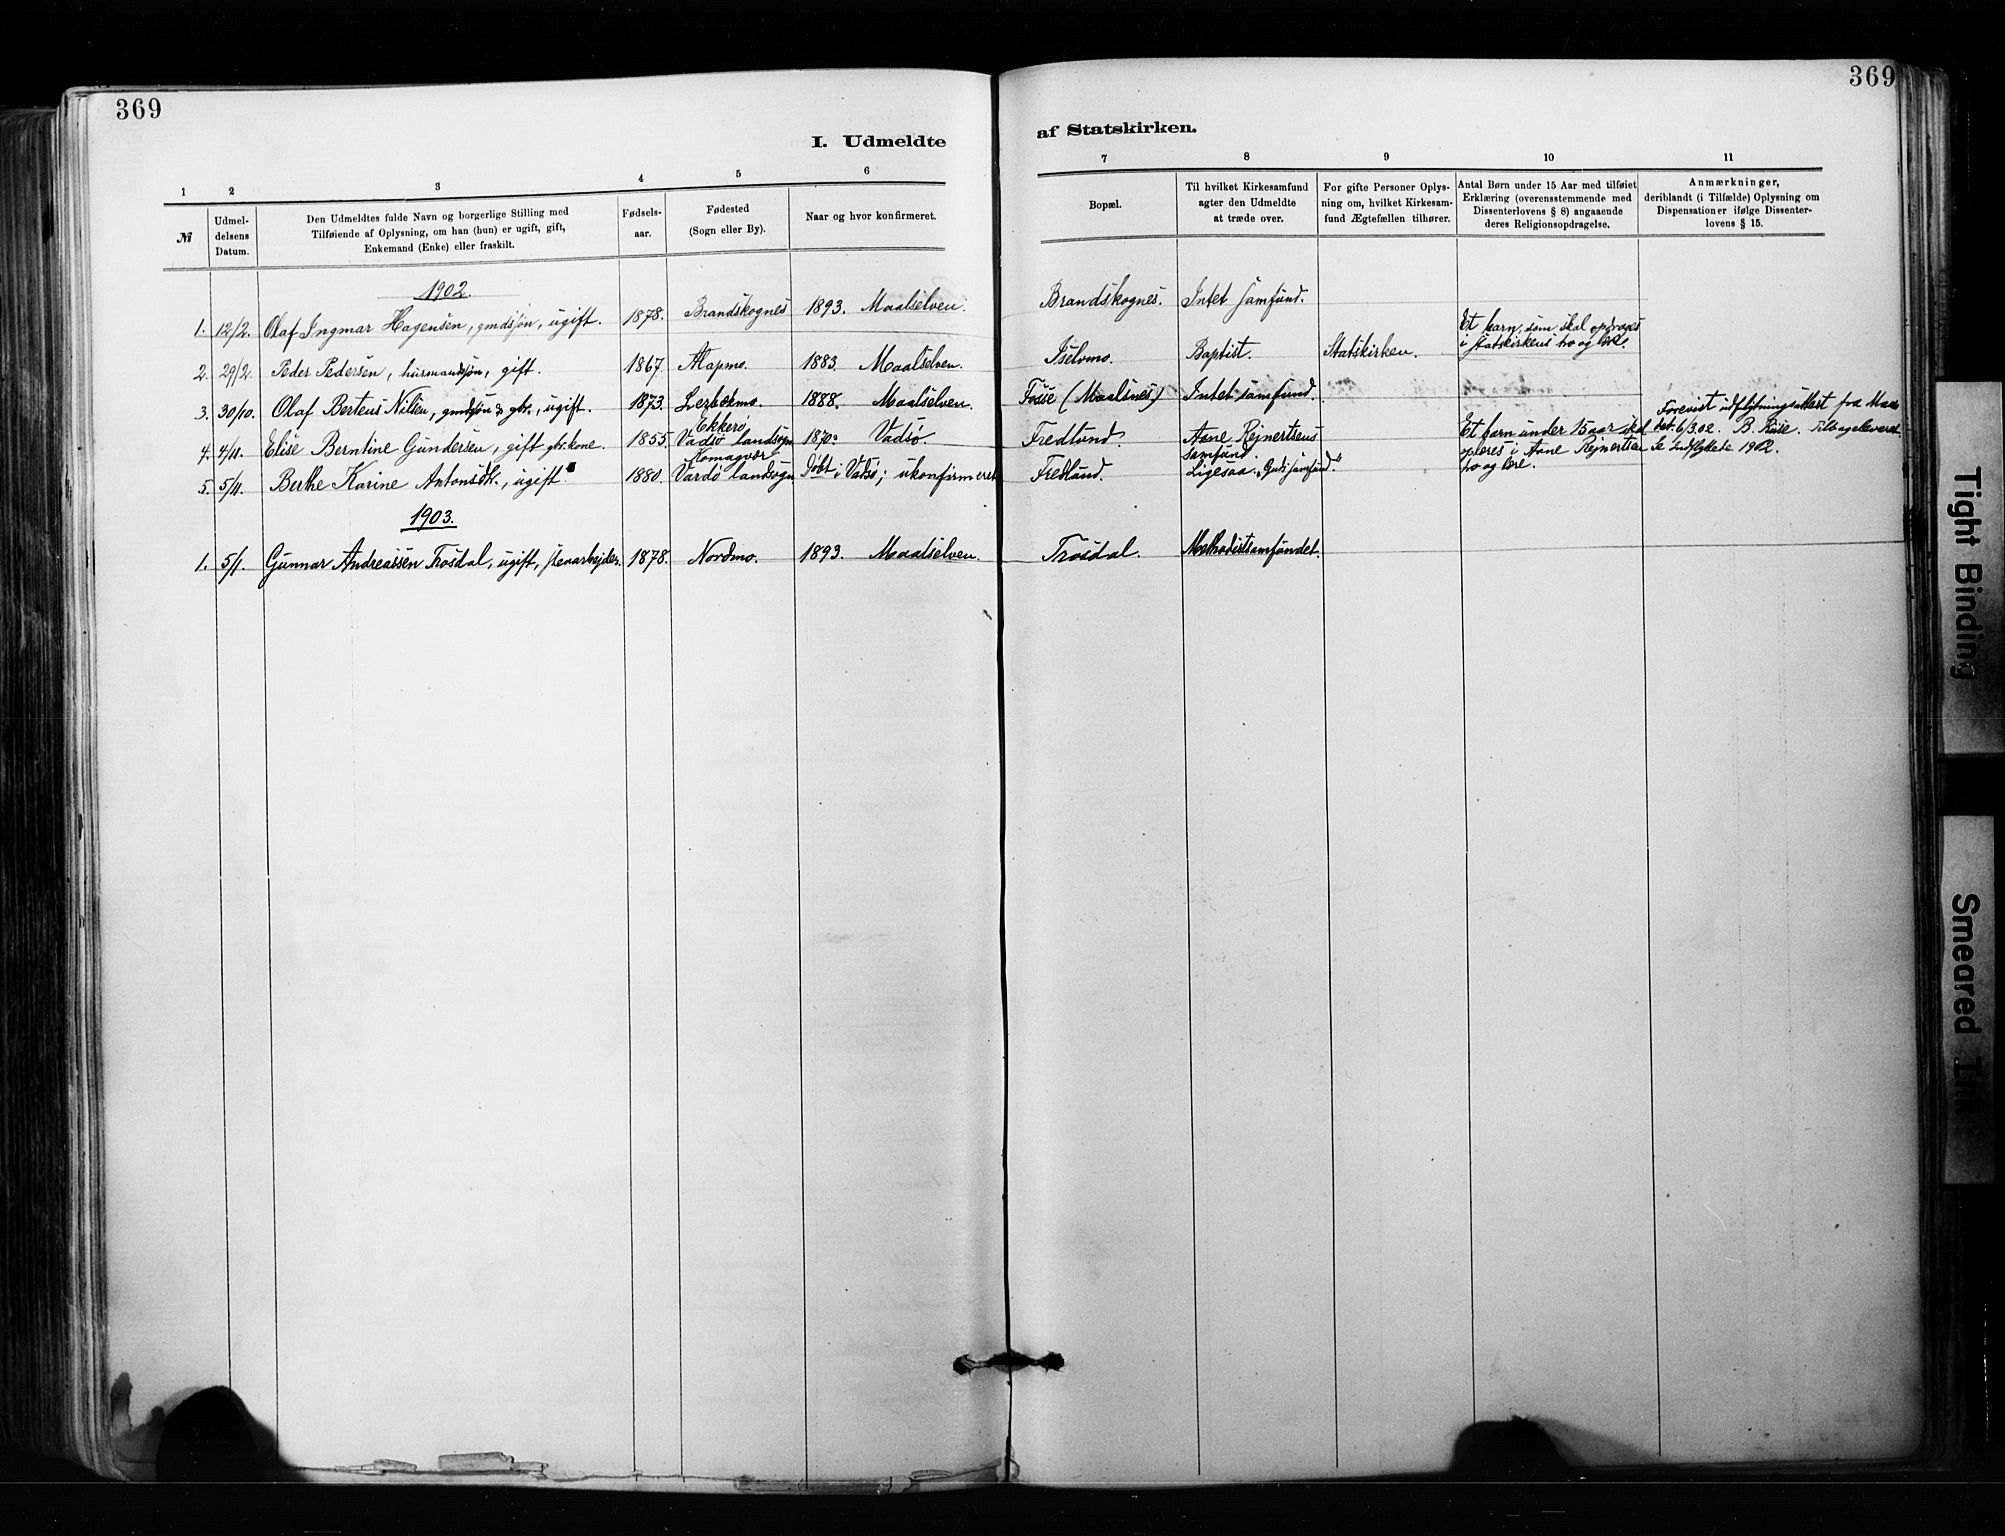 369
369
I. Udmeldte af Statskirken.
1 2 3 4 5 6 7 8 9 10 11
№
Udmel-
delsens
Datum.
Den Udmeldtes fulde Navn og borgerlige Stilling med
Tilføiende af Oplysning, om han (hun) er ugift, gift,
Enkemand (Enke) eller fraskilt.
Fødsels-
aar.
Fødested
(Sogn eller By).
Naar og hvor konfirmeret.
Bopæl.
Til hvilket Kirkesamfund
agter den Udmeldte
at træde over.
For gifte Personer Oplys-
ning om, hvilket Kirkesam-
fund Ægtefællen tilhører.
Antal Børn under 15 Aar med tilføiet
Erklæring (overensstemmende med
Dissenterlovens § 8) angaaende
deres Religionsopdragelse.
Anmærkninger,
deriblandt (i Tilfælde) Oplysning om
Dispensationer ifølge Dissenter-
lovens § 15.
1902.
1. 12/2. Olaf Ingmar Hagensen, gmdsjøn, ugift. 1878. Brandskognes 1893. Maalselven. Brandskognes. Intet samfund.
2. 29/2. Peder Pedersen, husmandsjøn, gift. 1867. Alapmo. 1883. Maalselven. Iselvmo. Baptist. Statskirken. Et barn, som skal opdrages
i statskirkens tro og lære.
3. 30/10. Olaf Berteus Nilsen, gmdsjøn & gbr., ugift. 1873. Lerbekmo. 1888. Maalselven. Fosse (Maalsnes) Intet samfund.
4. 4/11. Elise Berntine Gundersen, gift gbr.kone. 1855. Ekkerø
Vadsø landsogn 1870. Vadsø. Fredlund Aane Rejnertsens
samfund. Et barn under 15 aar skal
opdres i Aane Rejnertsen
tro og lære. Forevist udflytningsattest fra
dat. 6/3 02. B. Riise. Tilbageleveret.
Se Indflyttede 1902.
5. 5/11. Berthe Karine Antonsdtr., ugift. 1880. Komagvær
Vardø landsogn Døbt i Vadsø; ukonfirmeret Fredlund. Ligesaa "Guds samfund."
1903.
1. 5/1. Gunnar Andreassen Trosdal, ugift, stenarbejder. 1878. Nordmo. 1893. Maalselven. Trosdal. Methodistsamfundet.
Tight Binding
Smeared